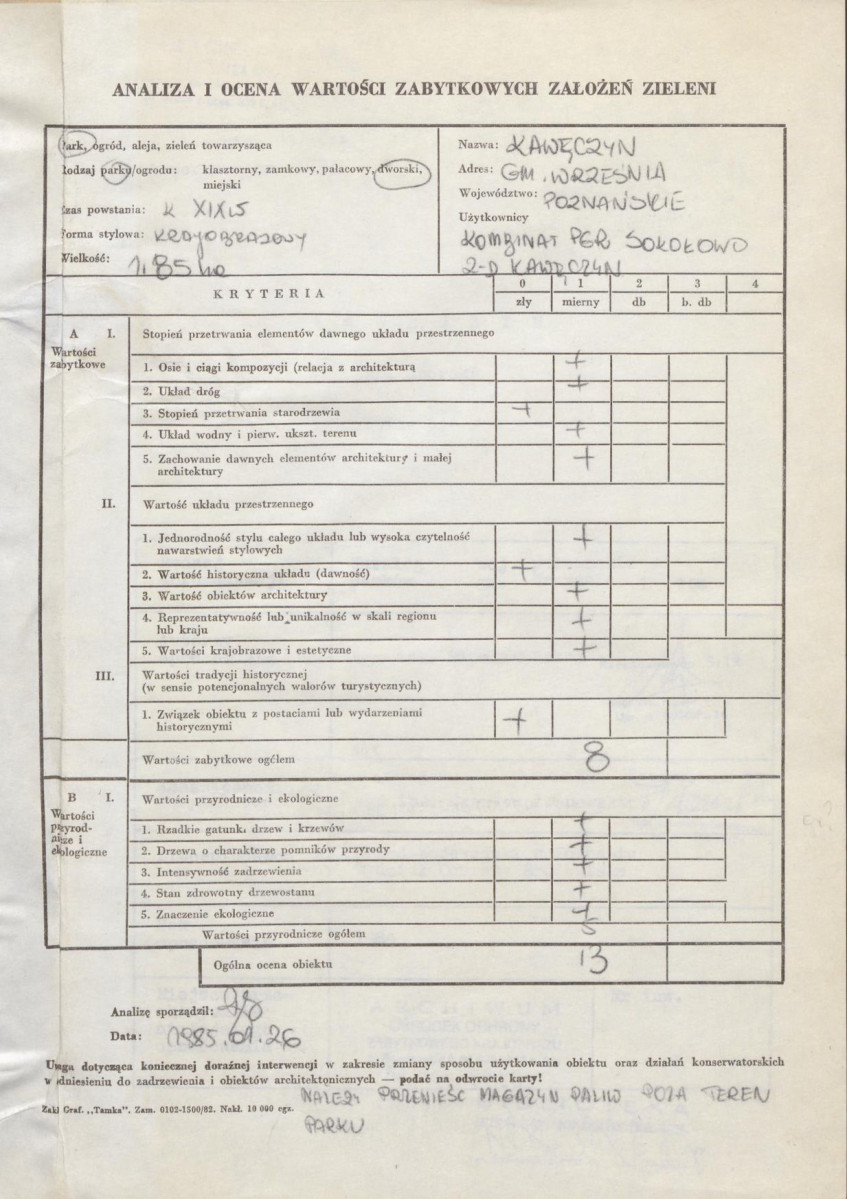 ANALIZA I OCENA WARTOŚCI ZABYTKOWYCH ZAŁOŻEŃ ZIELENI
Park, ogród, aleja, zieleń towarzysząca
Rodzaj parku/ogrodu: klasztorny, zamkowy, pałacowy, dworski,
miejski
Czas powstania: K XIX W
Forma stylowa: KRAJOBRAZOWY
Wielkość: 1,85 ha
Nazwa: KAWĘCZYN
Adres: GM. WRZEŚNIA
Województwo: POZNAŃSKIE
Użytkownicy
KOMBINAT PGR SOKOŁOWO
Z-D KAWĘCZYN
KRYTERIA
0 1 2 3 4
zły mierny db b. db
A I. Stopień przetrwania elementów dawnego układu przestrzennego
Wartości
zabytkowe
1. Osie i ciągi kompozycji (relacja z architekturą +
2. Układ dróg +
3. Stopień przetrwania starodrzewia +
4. Układ wodny i pierw. ukszt. terenu +
5. Zachowanie dawnych elementów architektury i małej +
architektury
II. Wartość układu przestrzennego
1. Jednorodność stylu całego układu lub wysoka czytelność +
nawarstwień stylowych
2. Wartość historyczna układu (dawność) +
3. Wartość obiektów architektury +
4. Reprezentatywność lub unikalność w skali regionu +
lub kraju
5. Wartości krajobrazowe i estetyczne +
III. Wartości tradycji historycznej
(w sensie potencjonalnych walorów turystycznych)
1. Związek obiektu z postaciami lub wydarzeniami +
historycznymi
Wartości zabytkowe ogółem 8
B I. Wartości przyrodnicze i ekologiczne
Wartości
przyrod-
nicze i
ekologiczne
1. Rzadkie gatunki drzew i krzewów +
2. Drzewa o charakterze pomników przyrody +
3. Intensywność zadrzewienia +
4. Stan zdrowotny drzewostanu +
5. Znaczenie ekologiczne +
Wartości przyrodnicze ogółem 5
Ogólna ocena obiektu 13
Analizę sporządził:
Data: 1985.01.26
Uwaga dotycząca koniecznej doraźnej interwencji w zakresie zmiany sposobu użytkowania obiektu oraz działań konserwatorskich
w odniesieniu do zadrzewienia i obiektów architektonicznych — podać na odwrocie karty!
NALEŻY PRZENIEŚĆ MAGAZYN PALIW POZA TEREN
PARKU
Zakł Graf. „Tamka". Zam. 0102-1500/82. Nakł. 10 000 egz.